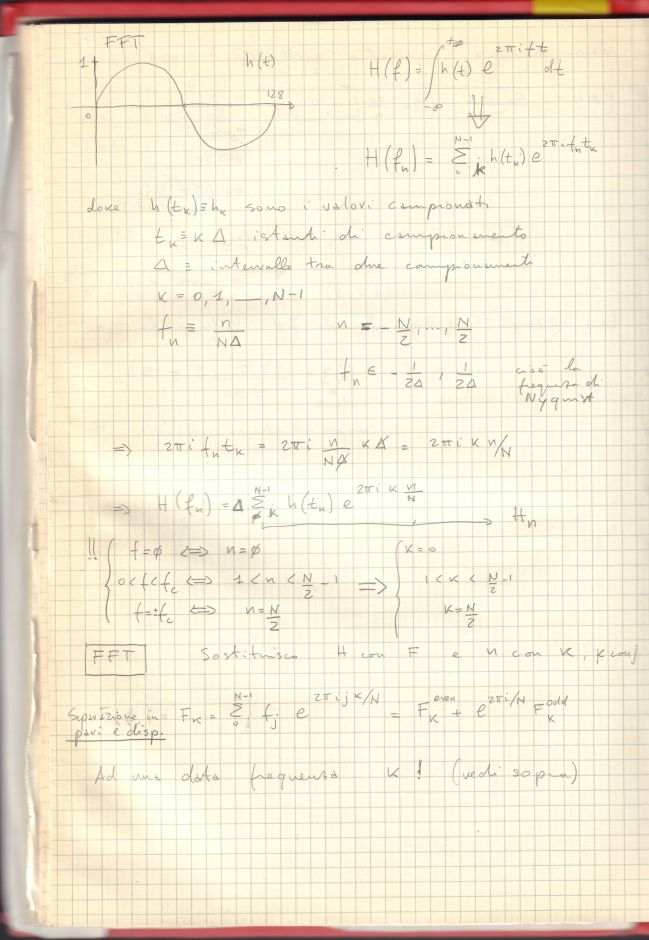 FFT
1
0
h(t)
128
H(f) = ∫_{-∞}^{+∞} h(t) e^{2πift} dt
⇓
H(f_n) = Σ_{0 k}^{N-1} h(t_k) e^{2πi f_n t_k}
dove h(t_k) ≡ h_k sono i valori campionati
t_k ≡ k Δ istanti di campionamento
Δ ≡ intervallo tra due campionamenti
K = 0, 1, ___, N-1
f_n ≡ n/NΔ n = -N/2, ..., N/2
f_n ∈ -1/2Δ , 1/2Δ cioò la
frequeza di
Nyquist
⇒ 2πi f_n t_k = 2πi n/NΔ k Δ = 2πi k n/N
⇒ H(f_n) = Δ Σ_{φ k}^{N-1} h(t_k) e^{2πi k n/N} → H_n
!! { f=φ ⟺ n=φ { K=0
0<f<f_c ⟺ 1<n<N/2-1 ⟹ 1<k<N/2-1
f=±f_c ⟺ n=N/2 K=N/2
FFT Sostituisco H con F e n con K, k con j
Separazione in pari e disp. F_K = Σ_{0 j}^{N-1} f_j e^{2πijk/N} = F_K^{even} + e^{2πi/N} F_K^{odd}
Ad una data frequenza K ! (vedi sopra)